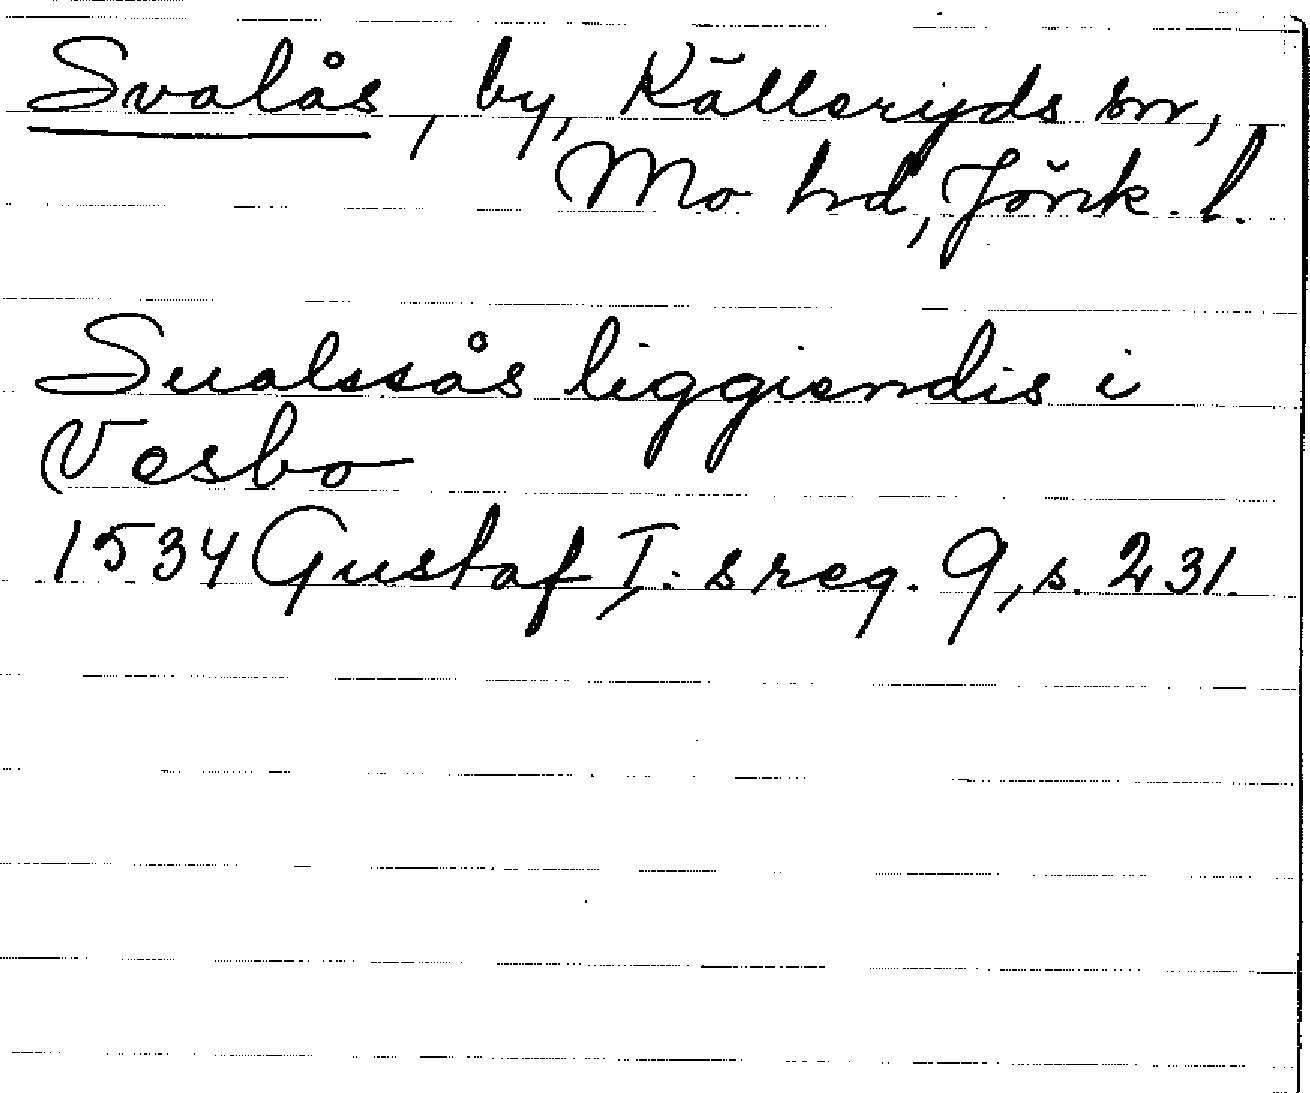 Svalås, by, Källeryds sn,
Mo hd, Jönk. l.
Sualssås liggiendis i
Vesbo
1534 Gustaf I: s reg. 9, s. 231.